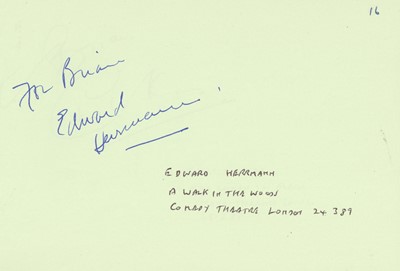 16
For Brian
Edward
Herrmann
EDWARD HERRMANN
A WALK IN THE WOODS
COMEDY THEATRE LONDON 24 3 89